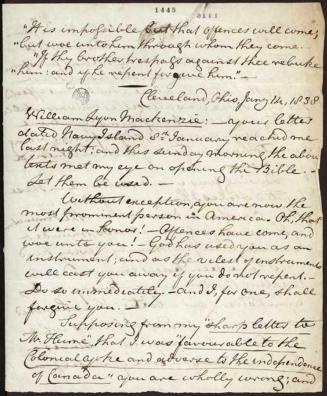 1445
"It is impossible but that offences will come;
"but woe unto him through whom they come.
"If thy brother trespass against thee rebuke
"him: and if he repent forgive him." —
Cleveland, Ohio, Jany 14, 1838
William Lyon Mackenzie: — your letter
dated Navy Island 8th January reached me
last night: and this sunday morning the above
texts met my eye on opening the Bible. —
Let them be used. —
Without exception, you are now the
most prominent person in America. Oh, that
it were in honor! — Offences have come, and
woe unto you! — God has used you as an
instrument; and as the vilest of instruments
will cast you away if you do not repent. —
Do so immediately — and I, for one, shall
forgive you. —
Supposing from my "sharp letter to
Mr Hume, that I was favourable to the
Colonial yoke and adverse to the independence
of Canada" you are wholly wrong; and